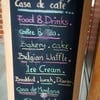 Casa de café
Food & Drinks.
Coffee & Tea.
Bakery. Cake.
Belgian Waffle.
Ice Cream.
Breakfast, lunch, Dinner
Casa de